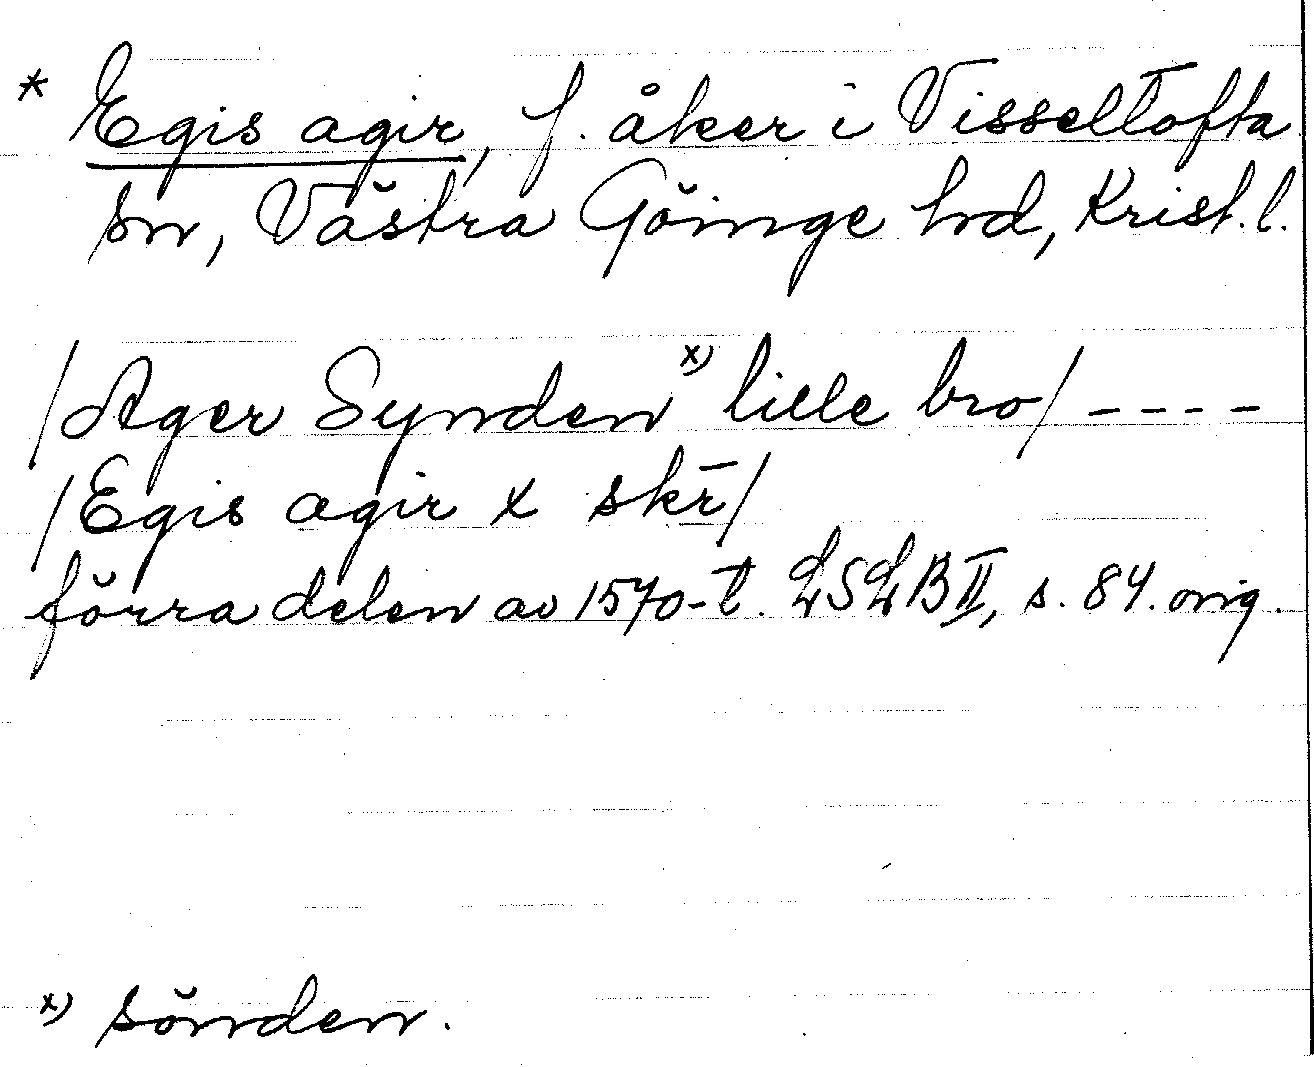 * Egis agir, f. åker i Visseltofta
sn, Västra Göinge hrd, Krist. l.
/Ager Synden x) lille bro/ ----
/Egis agir x skr̄/
förra delen av 1570-t. LSLB II, s. 84. orig.
x) sönden.